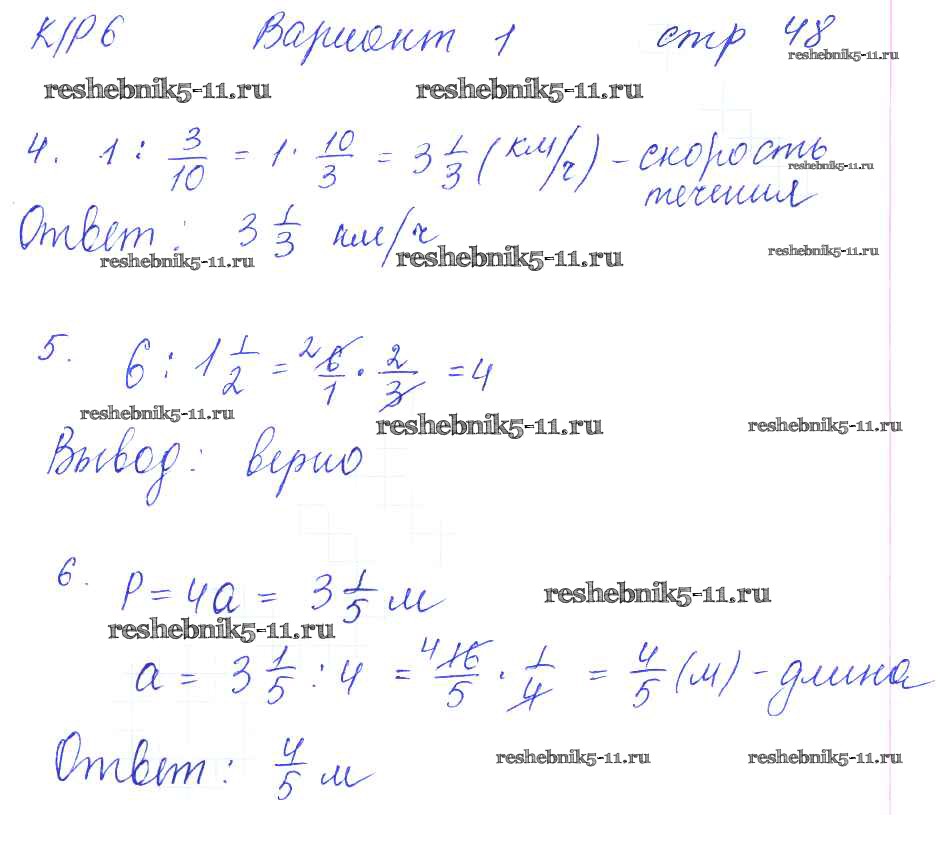 К/Р 6 Вариант 1 стр 48
reshebnik5-11.ru
reshebnik5-11.ru reshebnik5-11.ru
4. 1 : 3/10 = 1 · 10/3 = 3 1/3 (км/ч) - скорость
reshebnik5-11.ru
течения
Ответ: 3 1/3 км/ч
reshebnik5-11.ru reshebnik5-11.ru reshebnik5-11.ru
5. 6 : 1 1/2 = 2 6/1 · 2/3 = 4
reshebnik5-11.ru reshebnik5-11.ru reshebnik5-11.ru
Вывод: верно
6. P = 4a = 3 1/5 м
reshebnik5-11.ru
reshebnik5-11.ru
a = 3 1/5 : 4 = 4 16/5 · 1/4 = 4/5 (м) - длина
Ответ: 4/5 м
reshebnik5-11.ru reshebnik5-11.ru